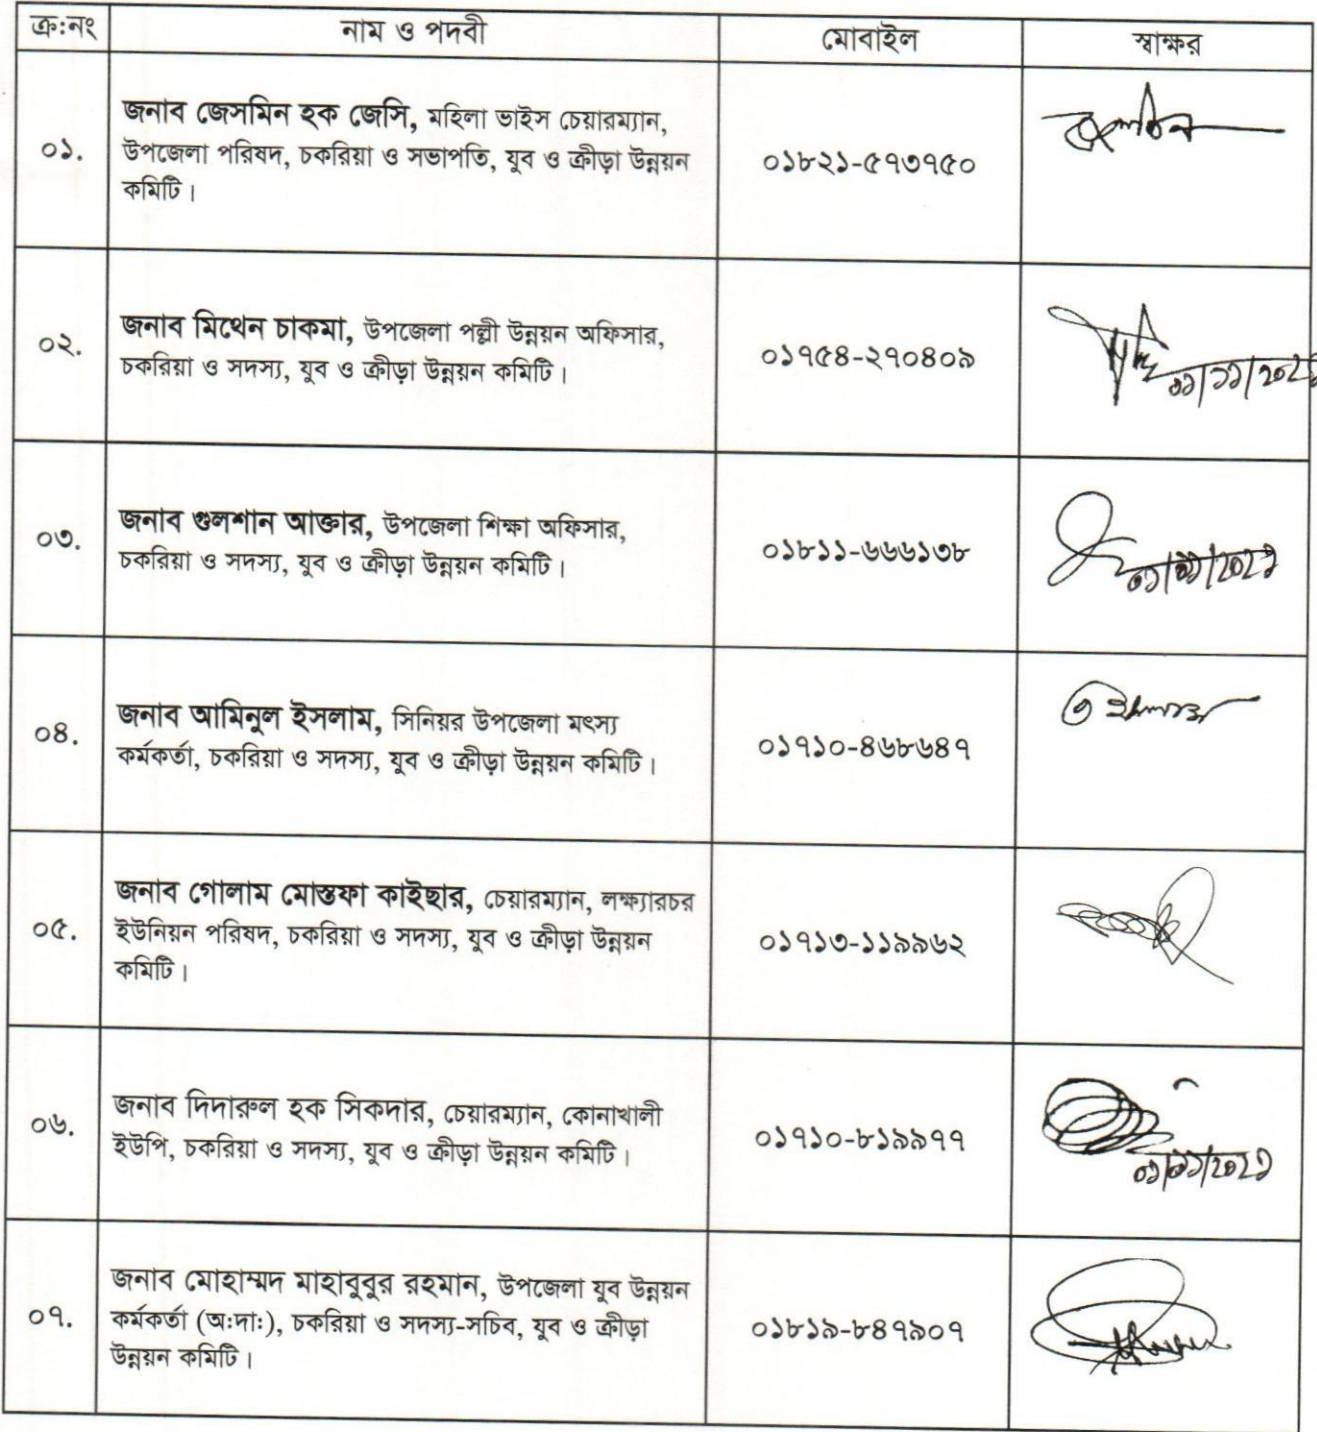 ক্র:নং নাম ও পদবী মোবাইল স্বাক্ষর
০১. জনাব জেসমিন হক জেসি, মহিলা ভাইস চেয়ারম্যান,
উপজেলা পরিষদ, চকরিয়া ও সভাপতি, যুব ও ক্রীড়া উন্নয়ন
কমিটি।
০১৮২১-৫৭৩৭৫০
০২. জনাব মিথেন চাকমা, উপজেলা পল্লী উন্নয়ন অফিসার,
চকরিয়া ও সদস্য, যুব ও ক্রীড়া উন্নয়ন কমিটি।
০১৭৫৪-২৭০৪০৯
০৩. জনাব গুলশান আক্তার, উপজেলা শিক্ষা অফিসার,
চকরিয়া ও সদস্য, যুব ও ক্রীড়া উন্নয়ন কমিটি।
০১৮১১-৬৬৬১৩৮
০৪. জনাব আমিনুল ইসলাম, সিনিয়র উপজেলা মৎস্য
কর্মকর্তা, চকরিয়া ও সদস্য, যুব ও ক্রীড়া উন্নয়ন কমিটি।
০১৭১০-৪৬৮৬৪৭
০৫. জনাব গোলাম মোস্তফা কাইছার, চেয়ারম্যান, লক্ষ্যারচর
ইউনিয়ন পরিষদ, চকরিয়া ও সদস্য, যুব ও ক্রীড়া উন্নয়ন
কমিটি।
০১৭১৩-১১৯৯৬২
০৬. জনাব দিদারুল হক সিকদার, চেয়ারম্যান, কোনাখালী
ইউপি, চকরিয়া ও সদস্য, যুব ও ক্রীড়া উন্নয়ন কমিটি।
০১৭১০-৮১৯৯৭৭
০৭. জনাব মোহাম্মদ মাহাবুবুর রহমান, উপজেলা যুব উন্নয়ন
কর্মকর্তা (অ:দাঃ), চকরিয়া ও সদস্য-সচিব, যুব ও ক্রীড়া
উন্নয়ন কমিটি।
০১৮১৯-৮৪৭৯০৭